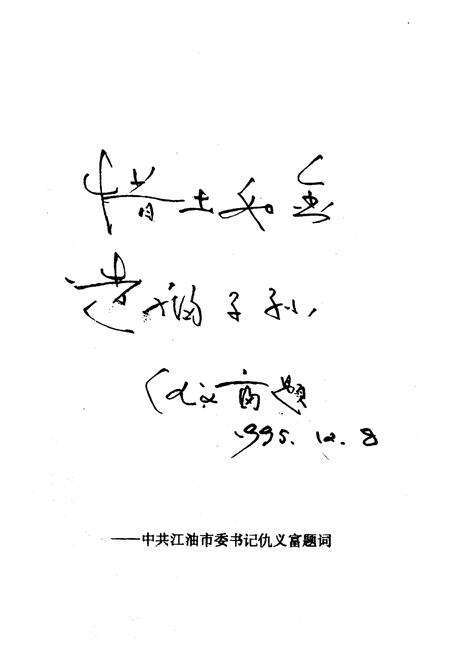 惜土如金
造福子孙,
仇义富题
1995.12.8
——中共江油市委书记仇义富题词